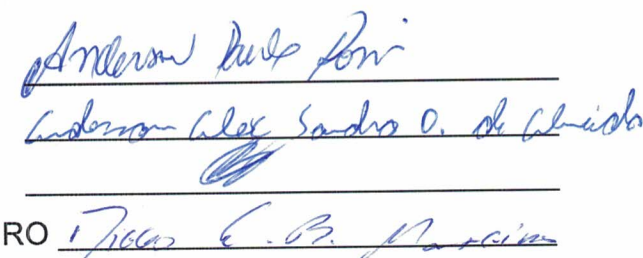 Anderson Paulo Rossi
Anderson Alex Sandro O. de Almeida
RO Diego E. B.